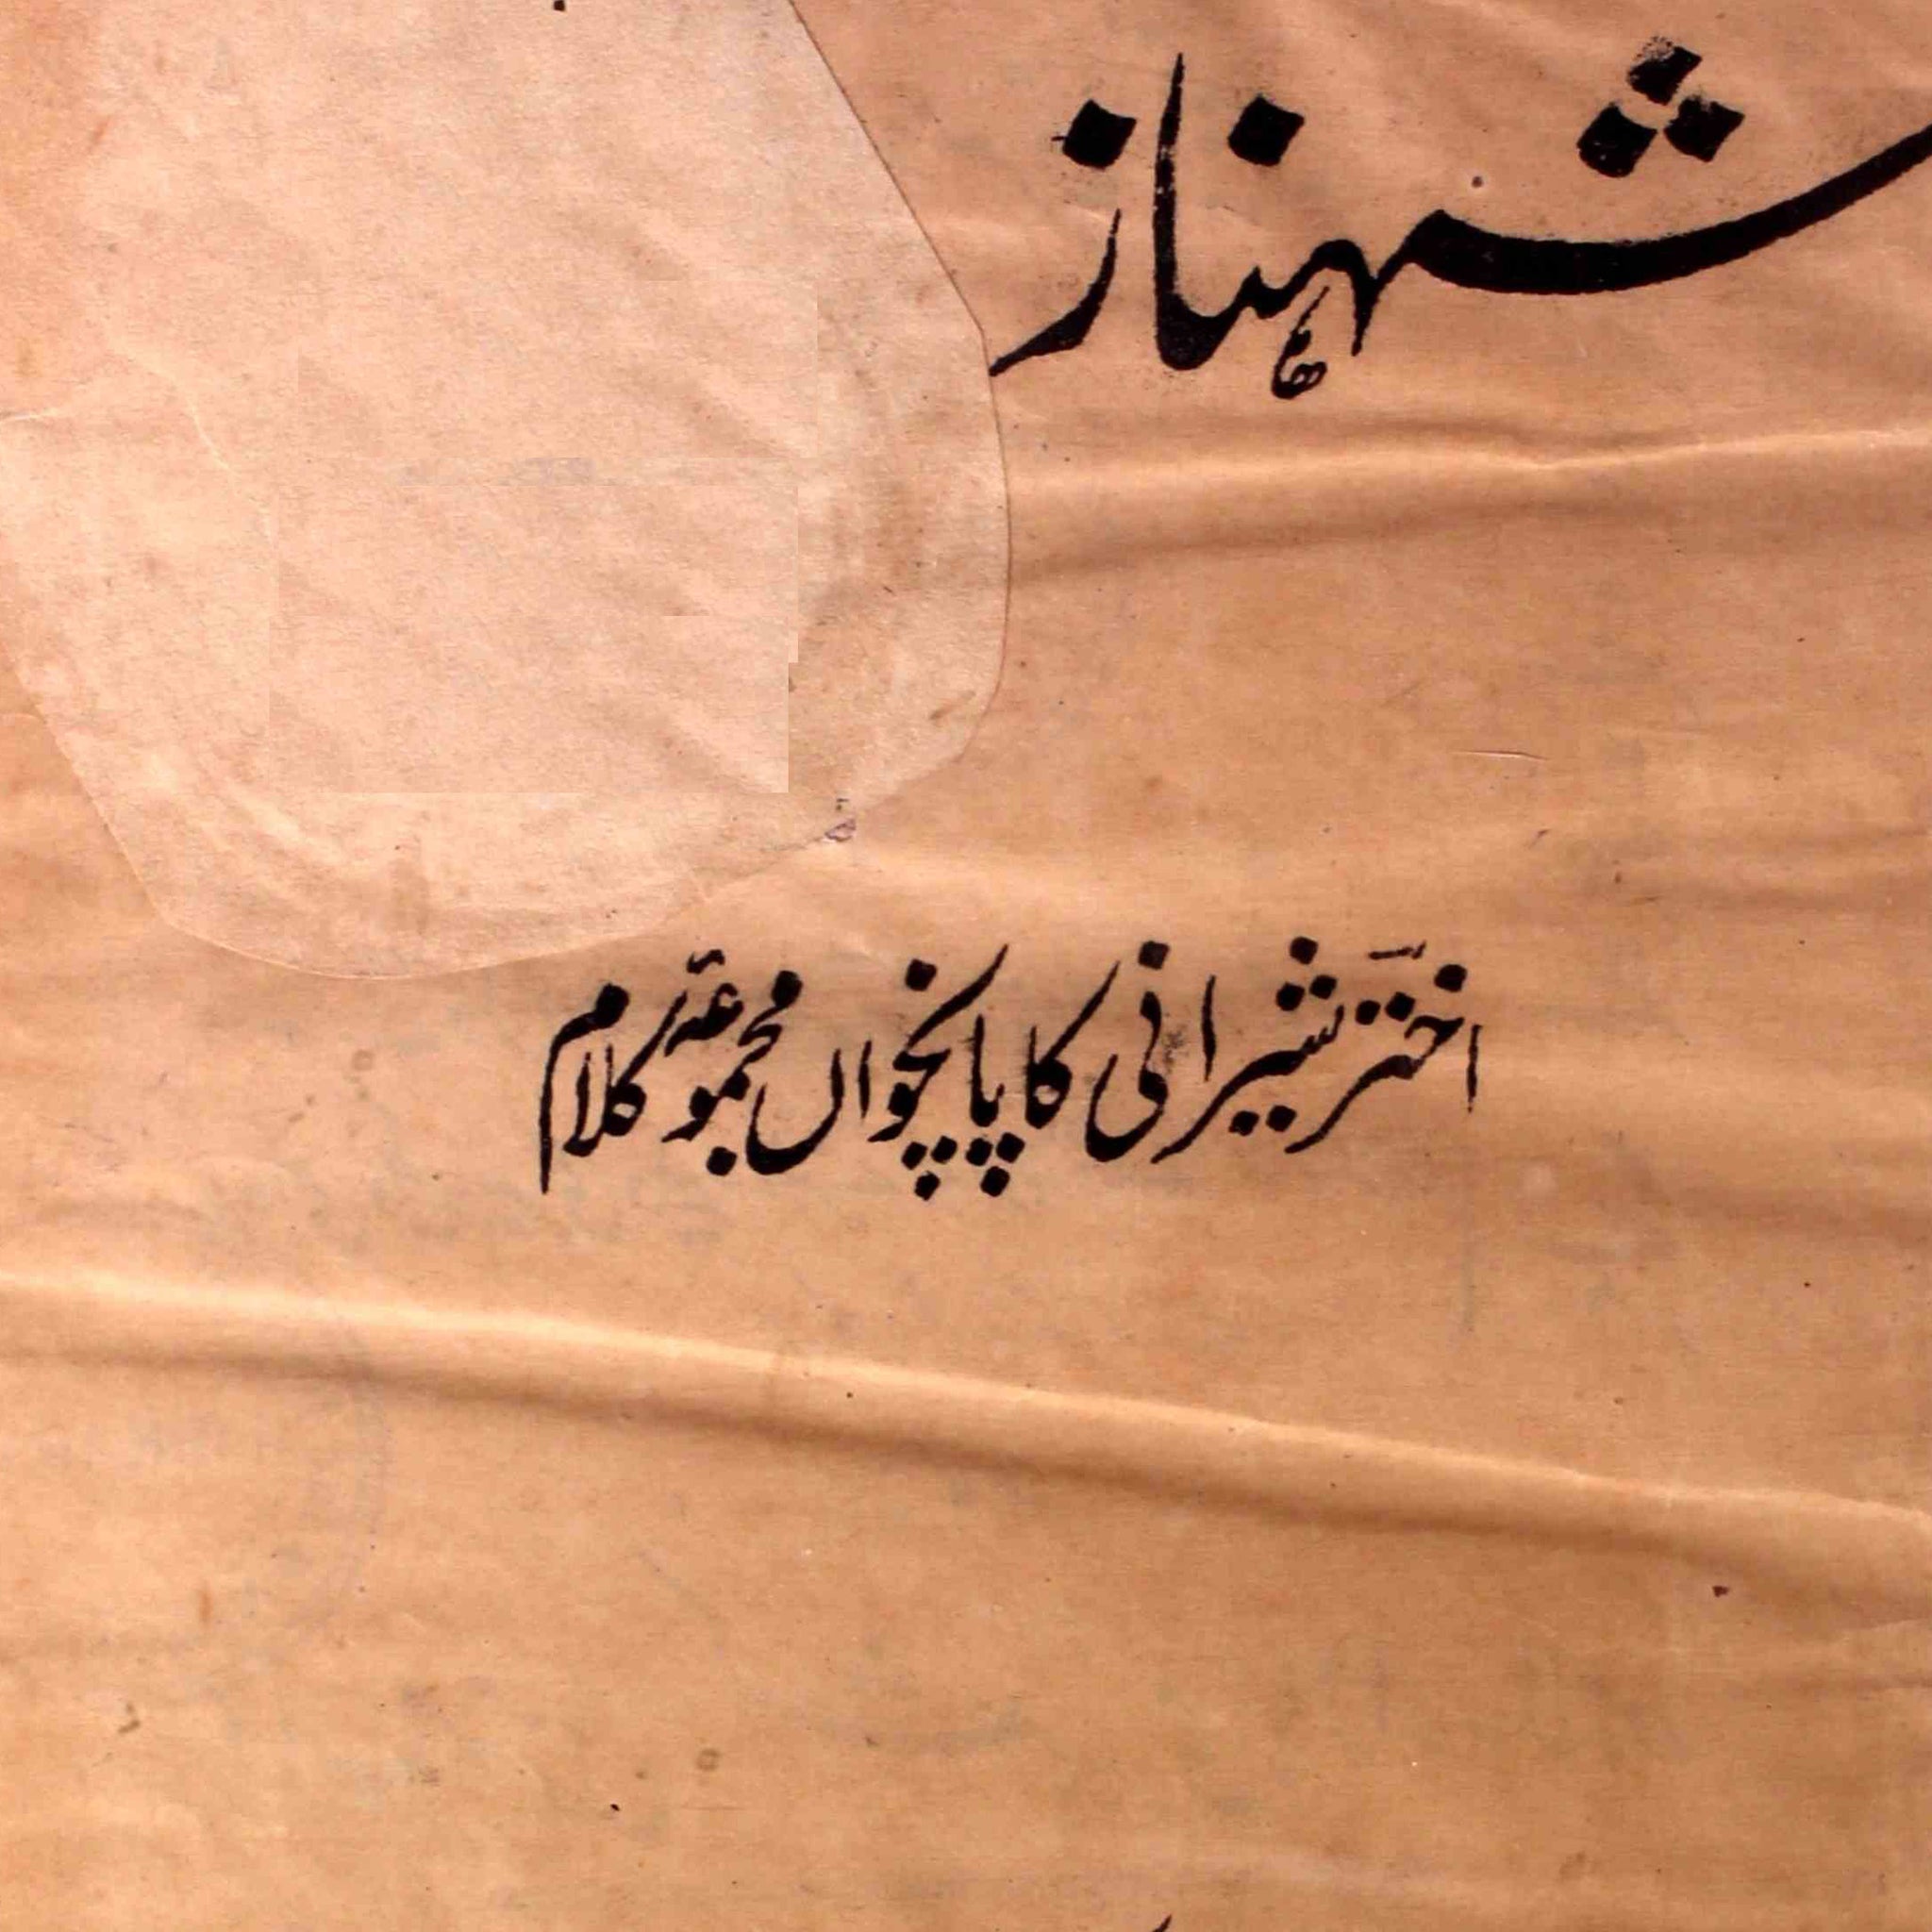 شہناز
اختر شیرانی کا پانچواں مجموعۂ کلام